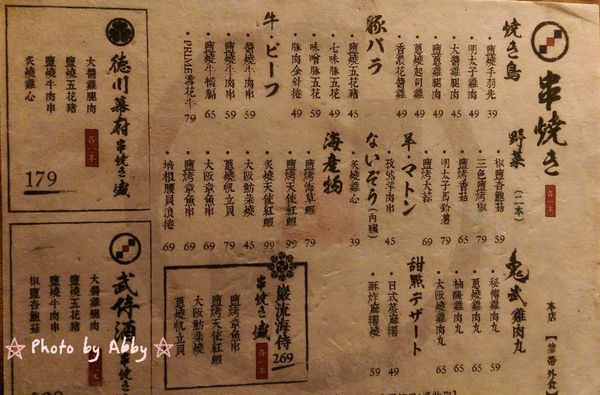 串燒き
各一本
燒き鳥
鹽燒手羽先 39
明太子雞肉 49
大醬雞腿肉 45
鹽蔥雞腿肉 49
蔥燒起司雞 49
香濃花醬雞 49
豚バラ
鹽燒五花豬 45
七味五花豬 49
味噌豚五花 49
豚肉金針捲 49
牛・ビーフ
醬燒牛肉串 59
鹽燒牛肉串 59
鹽燒牛橫膈 65
PRIME霜花牛 79
野菜
(二本)
椒鹽杏鮑菇 59
三色鹽烤椒
鹽烤香菇 65
明太子馬鈴薯 79
鹽烤大蒜
羊・マトン
孜然羊肉串 45
ないぞう(內臟)
炙燒雞心 39
海産物
鹽烤海草蝦 69
鹽烤天使紅蝦 99
大阪魷朵燒 45
蔥燒帆立貝 79
大阪章魚串 69
鹽烤章魚串 69
培根腰貝浪捲 69
鬼武雞肉丸
秘傳雞肉丸 59
蔥燒雞肉丸 65
柚醃雞肉丸 65
大阪燒雞肉丸 65
甜點デザート
日式茶麻糬 49
酥炸麻糬燒 59
本店
【禁帶外食】
德川幕府
串燒き盛
各一本
大醬雞腿肉
鹽燒五花豬
鹽燒牛肉串
炙燒雞心
179
武侍酒
串燒き盛
大醬雞腿肉
鹽燒五花豬
鹽燒牛肉串
椒鹽杏鮑菇
巌流海侍
串燒き盛
各一本
269
鹽烤章魚串
鹽烤天使紅蝦
大阪魷朵燒
蔥燒帆立貝
☆ Photo by Abby ☆